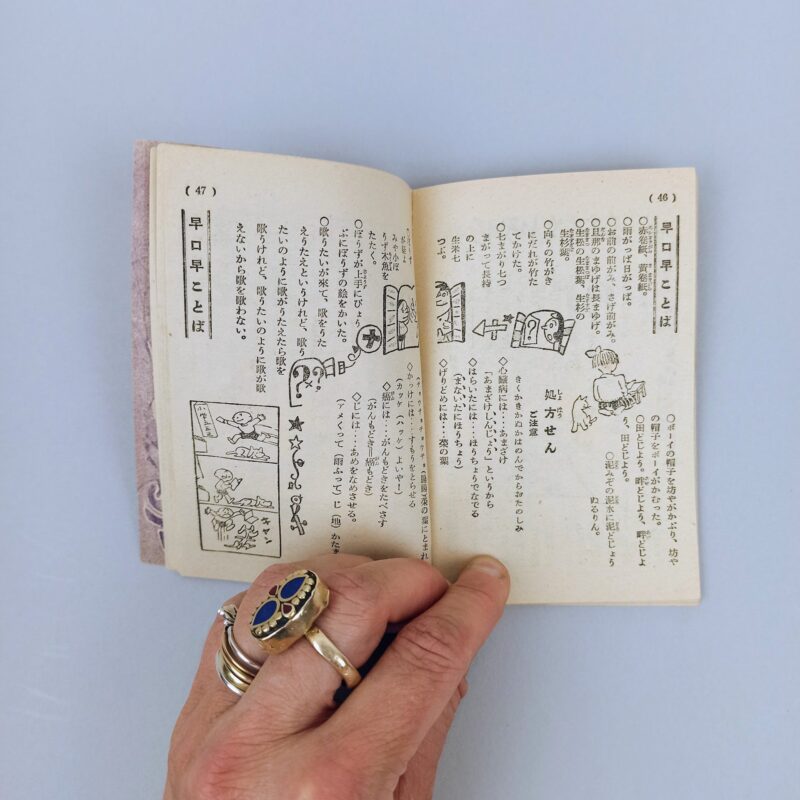 ( 46 )
早口早ことば
○赤巻紙、黄巻紙。
○雨がっぱ日がっぱ。
○お前の前がみ、さげ前がみ。
○旦那のまゆげは長まゆげ。
○生松の生松葉、生杉の
生杉葉。
○向うの竹がき
にだれが竹た
てかけた。
○七まがり七つ
まがって長持
の上に
生米七
つぶ。
○ボーイの帽子を坊やがかぶり、坊や
の帽子をボーイがかむった。
○田どじよう。畔どじよう、畔どじよ
う、田どじよう。
○泥みぞの泥水に泥どじよう
ぬるりん。
処方せん
ご注意
きくかきかぬかはのんでからおたのしみ
◇心臓病には‥‥あまざけ
「あまざけしんじょう」というから
◇はらいたには‥‥ほうちょうでなでる
(まないたにほうちょう)
◇げりどめには‥‥葵の葉
( 47 )
早口早ことば
みや小ぼ
りず木魚を
たたく。
○ぼうずが上手にびょう
ぶにぼうずの絵をかいた。
○歌うたいが來て、歌をうた
えうたえというけれど、歌う
たいのように歌がうたえたら歌を
歌うけれど、歌うたいのように歌が歌
えないから歌を歌わない。
葵の葉にとまれ
◇かっけには‥‥すもうをとらせる
(カッケ(ハッケ)よいやー)
◇癌には‥‥がんもどきをたべさす
(がんもどき=癌もどき)
◇じには‥‥あめをなめさせる。
(アメくって(雨ふって)じ(地)かたま